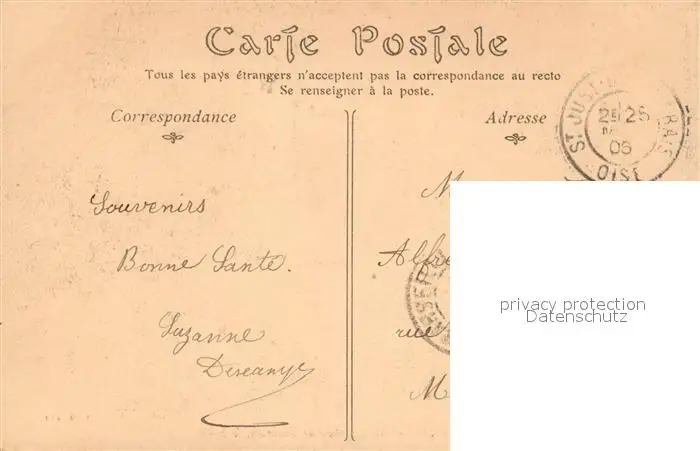 Carte Postale
Tous les pays étrangers n'acceptent pas la correspondance au recto
Se renseigner à la poste.
Correspondance
Adresse
ST JUST
25
06
OISE
M
Souvenirs
Alfre
Bonne Santé.
privacy protection
Datenschutz
Suzanne
rue
M